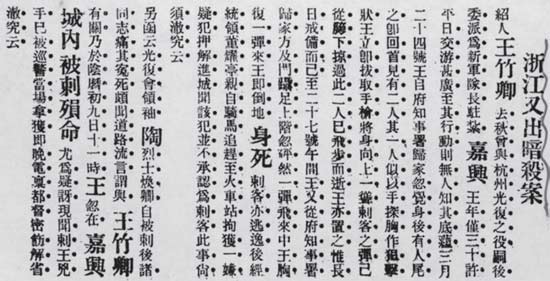 浙江又出暗殺案
紹人王竹卿 去秋曾與杭州光復之役嗣後
委派爲新軍隊長駐紮 嘉興 王年僅三十許
平日交游甚廣至其行動則無人知其底蘊三月
二十四號王自府知事署歸家忽覺身後有人尾
之卽回首見有二人其一人似以手探胸作狙擊
狀王立卽拔取手槍將身向上一聳刺客之彈已
從脚下掠過此二人已飛步而逝王亦置之惟長
日戒備而已至二十七號午間王又從府知事署
歸家方及門躡足上階忽砰然一彈飛來中王胸
復一彈來王卽倒地 身死 刺客亦逃逸後經
統領董耀亭親自騎馬追趕至火車站拘獲一嫌
疑犯押解進城聞該犯並不承認爲刺客此事尙
須澈究云
另函云光復會領袖 陶烈士煥卿自被刺後諸
同志痛其冤死頗聞道路流言謂與 王竹卿
有關乃於陰曆初九日十一時王 忽在 嘉興
城內被刺殞命 尤爲疑訝現聞刺王兇
手已被巡警當場拿獲卽晚電稟都督密飭解省
澈究云